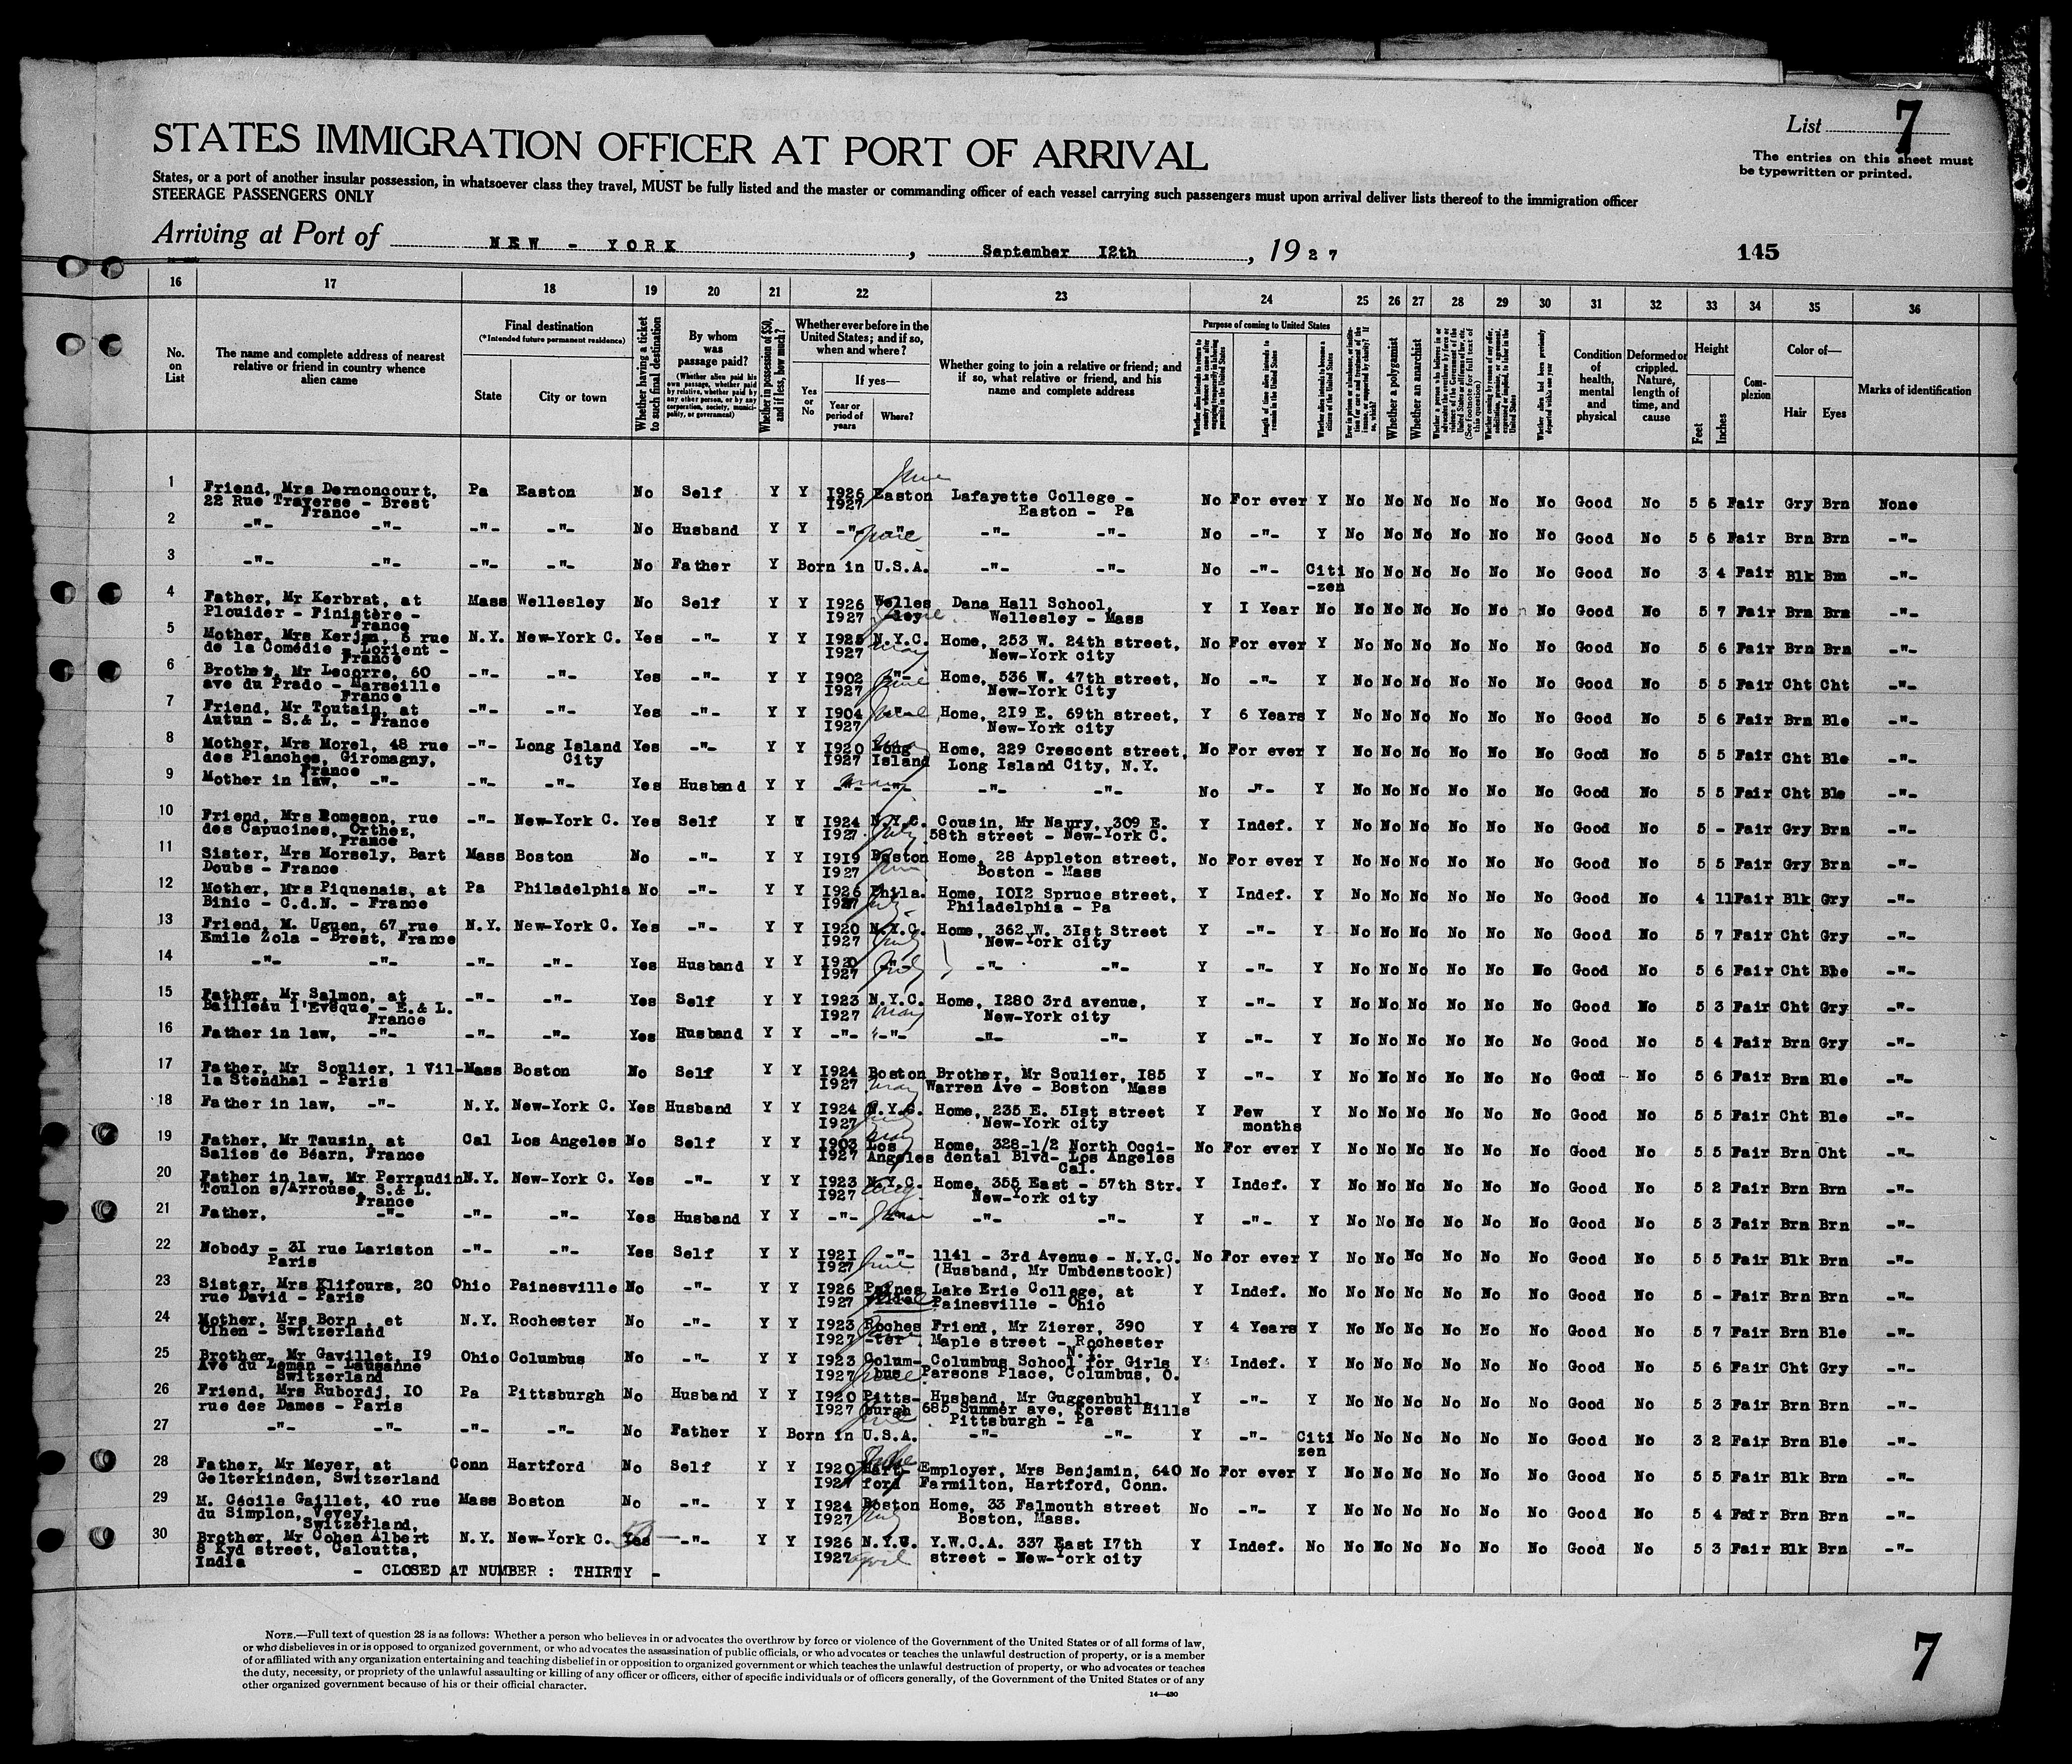 List 7
The entries on this sheet must
be typewritten or printed.
STATES IMMIGRATION OFFICER AT PORT OF ARRIVAL
States, or a port of another insular possession, in whatsoever class they travel, MUST be fully listed and the master or commanding officer of each vessel carrying such passengers must upon arrival deliver lists thereof to the immigration officer
STEERAGE PASSENGERS ONLY
Arriving at Port of NEW - YORK, September I2th, 1927 145
16 17 18 19 20 21 22 23 24 25 26 27 28 29 30 31 32 33 34 35 36
No. on List
The name and complete address of nearest relative or friend in country whence alien came
Final destination
(*Intended future permanent residence)
State
City or town
Whether having a ticket to such final destination
By whom was passage paid?
(Whether alien paid his own passage, whether paid by relative, whether paid by any other person, or by any corporation, society, municipality, or government)
Whether in possession of $50, and if less, how much?
Whether ever before in the United States; and if so, when and where?
Yes or No
If yes—
Year or period of years
Where?
Whether going to join a relative or friend; and if so, what relative or friend, and his name and complete address
Purpose of coming to United States
Length of time alien intends to remain in the United States
Whether alien intends to become a citizen of the United States
Whether a polygamist
Whether an anarchist
Whether alien had been previously deported within one year
Condition of health, mental and physical
Deformed or crippled. Nature, length of time, and cause
Height
Feet
Inches
Complexion
Color of—
Hair
Eyes
Marks of identification
1 Friend, Mrs Dernoncourt, 22 Rue Traverse - Brest France Pa Easton No Self Y Y I926 I927 Easton June Lafayette College - Easton - Pa No For ever Y No No No No No No Good No 5 6 Fair Gry Brn None
2 -"- -"- -"- -"- No Husband Y Y -"- -"- June -"- -"- No -"- Y No No No No No No Good No 5 6 Fair Brn Brn -"-
3 -"- -"- -"- -"- No Father Y Born in U.S.A. -"- -"- No -"- Citi-zen No No No No No No Good No 3 4 Fair Blk Brn -"-
4 Father, Mr Kerbrat, at Plouider - Finistère - France Mass Wellesley No Self Y Y I926 I927 Welles-ley Dana Hall School, Wellesley - Mass Y I Year No No No No No No No Good No 5 7 Fair Brn Brn -"-
5 Mother, Mrs Kerjan, 6 rue de la Comédie - Lorient - France N.Y. New-York C. Yes -"- Y Y I925 I927 N.Y.C. may Home, 253 W. 24th street, New-York city No For ever Y No No No No No No Good No 5 6 Fair Brn Brn -"-
6 Brother, Mr Lecorre, 60 ave du Prado - Marseille France -"- -"- Yes -"- Y Y I902 I927 -"- June Home, 536 W. 47th street, New-York City No -"- Y No No No No No No Good No 5 5 Fair Cht Cht -"-
7 Friend, Mr Toutain, at Autun - S.& L. - France -"- -"- Yes -"- Y Y I904 I927 Home, 2I9 E. 69th street, New-York city Y 6 Years Y No No No No No No Good No 5 6 Fair Brn Ble -"-
8 Mother, Mrs Morel, 48 rue des Planches, Giromagny, France -"- Long Island City Yes -"- Y Y I920 I927 Long Island Home, 229 Crescent street, Long Island City, N.Y. No For ever Y No No No No No No Good No 5 5 Fair Cht Ble -"-
9 Mother in law, -"- -"- -"- Yes Husband Y Y -"- -"- may -"- -"- No -"- Y No No No No No No Good No 5 5 Fair Cht Ble -"-
10 Friend, Mrs Romeson, rue des Capucines, Orthez, France -"- New-York C. Yes Self Y Y I924 I927 N.Y.C. July Cousin, Mr Naury, 309 E. 58th street - New-York C. Y Indef. Y No No No No No No Good No 5 - Fair Gry Brn -"-
11 Sister, Mrs Morsely, Bart Doubs - France Mass Boston No -"- Y Y I9I9 I927 Boston June Home, 28 Appleton street, Boston - Mass No For ever Y No No No No No No Good No 5 5 Fair Gry Brn -"-
12 Mother, Mrs Piquenais, at Binic - C.d.N. - France Pa Philadelphia No -"- Y Y I926 I927 Phila. July Home, I0I2 Spruce street, Philadelphia - Pa Y Indef. Y No No No No No No Good No 4 11 Fair Blk Gry -"-
13 Friend, M. Uguen, 67 rue Emile Zola - Brest, France N.Y. New-York C. Yes -"- Y Y I920 I927 N.Y.C. July Home, 362 W. 3Ist Street New-York city Y -"- Y No No No No No No Good No 5 7 Fair Cht Gry -"-
14 -"- -"- -"- -"- Yes Husband Y Y I920 I927 -"- July -"- -"- Y -"- Y No No No No No No Good No 5 6 Fair Cht Ble -"-
15 Father, Mr Salmon, at Bailleau l'Eveque - E.& L. France -"- -"- Yes Self Y Y I923 I927 N.Y.C. may Home, I280 3rd avenue, New-York city Y -"- Y No No No No No No Good No 5 3 Fair Cht Gry -"-
16 Father in law, -"- -"- -"- Yes Husband Y Y -"- -"- -"- -"- Y -"- Y No No No No No No Good No 5 4 Fair Brn Gry -"-
17 Father, Mr Soulier, 1 Vil-la Stendhal - Paris Mass Boston No Self Y Y I924 I927 Boston may Brother, Mr Soulier, I85 Warren Ave - Boston Mass Y -"- Y No No No No No No Good No 5 6 Fair Brn Ble -"-
18 Father in law, -"- N.Y. New-York C. Yes Husband Y Y I924 I927 N.Y.C. Home, 235 E. 5Ist street New-York city Y Few months Y No No No No No No Good No 5 5 Fair Cht Ble -"-
19 Father, Mr Tauzin, at Salies de Béarn, France Cal Los Angeles No Self Y Y I903 I927 Los Angeles may Home, 328-1/2 North Occi-dental Blvd- Los Angeles Cal. No For ever Y No No No No No No Good No 5 5 Fair Brn Cht -"-
20 Father in law, Mr Perraudin Toulon s/Arrouse, S.& L. France N.Y. New-York C. Yes -"- Y Y I923 I927 N.Y.C. Aug Home, 355 East - 57th Str. New-York city Y Indef. Y No No No No No No Good No 5 2 Fair Brn Brn -"-
21 Father, -"- -"- -"- Yes Husband Y Y -"- -"- June -"- -"- Y -"- Y No No No No No No Good No 5 3 Fair Brn Brn -"-
22 Nobody - 3I rue Lariston Paris -"- -"- Yes Self Y Y I92I I927 -"- June 1141 - 3rd Avenue - N.Y.C. (Husband, Mr Umbdenstock) No For ever Y No No No No No No Good No 5 5 Fair Blk Brn -"-
23 Sister, Mrs Klifours, 20 rue David - Paris Ohio Painesville No -"- Y Y I926 I927 Paines ville Lake Erie College, at Painesville - Ohio Y Indef. No No No No No No No Good No 5 - Fair Brn Brn -"-
24 Mother, Mrs Born, et Olhen - Switzerland N.Y. Rochester No -"- Y Y I923 I927 Roches-ter Friend, Mr Zierer, 390 Maple street - Rochester N.Y. Y 4 Years Y No No No No No No Good No 5 7 Fair Brn Ble -"-
25 Brother, Mr Gavillet, I9 Ave du Leman - Lausanne Switzerland Ohio Columbus No -"- Y Y I923 I927 Colum-bus June Columbus School for Girls Parsons Place, Columbus, O. Y Indef. Y No No No No No No Good No 5 6 Fair Cht Gry -"-
26 Friend, Mrs Rubordj, I0 rue des Dames - Paris Pa Pittsburgh No Husband Y Y I920 I927 Pitts-burgh June Husband, Mr Guggenbuhl, 685 Summer ave, Forest Hills Pittsburgh - Pa Y -"- Y No No No No No No Good No 5 3 Fair Brn Brn -"-
27 -"- -"- -"- -"- No Father Y Born in U.S.A. -"- -"- Y -"- Citi zen No No No No No No Good No 3 2 Fair Brn Ble -"-
28 Father, Mr Meyer, at Gelterkinden, Switzerland Conn Hartford No Self Y Y I920 I927 Hart-ford Employer, Mrs Benjamin, 640 Farmilton, Hartford, Conn. No For ever Y No No No No No No Good No 5 5 Fair Blk Brn -"-
29 M. Cécile Gaillet, 40 rue du Simplon, Vevey, Switzerland, Mass Boston No -"- Y Y I924 I927 Boston July Home, 33 Falmouth street Boston, Mass. No -"- Y No No No No No No Good No 5 4 Fair Brn Brn -"-
30 Brother, Mr Cohen Albert 8 Kyd street, Calcutta, India N.Y. New-York C. Yes -"- Y Y I926 I927 N.Y.C. april Y.W.C.A. 337 East I7th street - New-York city Y Indef. No No No No No No No Good No 5 3 Fair Blk Brn -"-
- CLOSED AT NUMBER : THIRTY -
NOTE.—Full text of question 28 is as follows: Whether a person who believes in or advocates the overthrow by force or violence of the Government of the United States or of all forms of law,
or who disbelieves in or is opposed to organized government, or who advocates the assassination of public officials, or who advocates or teaches the unlawful destruction of property, or is a member
of or affiliated with any organization entertaining and teaching disbelief in or opposition to organized government or which teaches the unlawful destruction of property, or who advocates or teaches
the duty, necessity, or propriety of the unlawful assaulting or killing of any officer or officers, either of specific individuals or of officers generally, of the Government of the United States or of any
other organized government because of his or their official character.
14—430
7